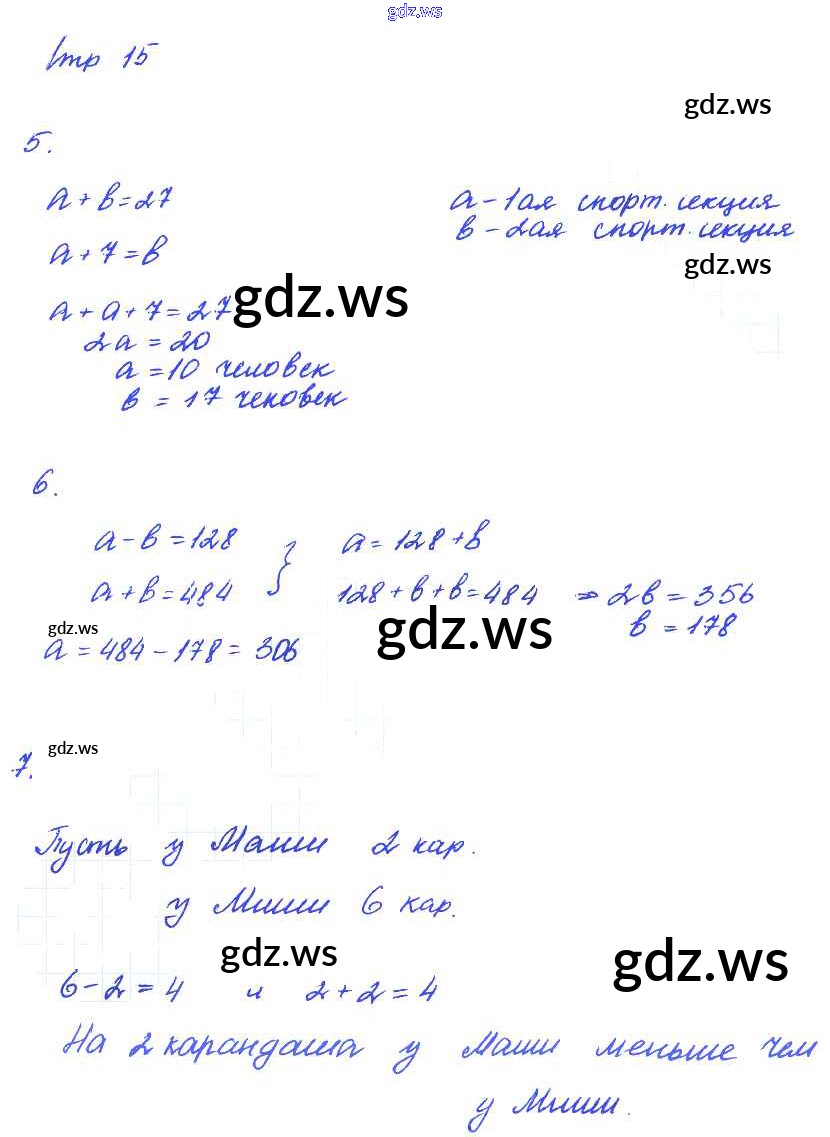 gdz.ws
Стр 15
gdz.ws
5.
a + b = 27
a - 1ая спорт. секция
b - 2ая спорт. секция
a + 7 = b
gdz.ws
gdz.ws
a + a + 7 = 27
2a = 20
a = 10 человек
b = 17 человек
6.
a - b = 128 } a = 128 + b
a + b = 484 128 + b + b = 484 => 2b = 356
gdz.ws
gdz.ws
b = 178
a = 484 - 178 = 306
gdz.ws
7.
Пусть у Маши 2 кар.
у Миши 6 кар.
gdz.ws
gdz.ws
6 - 2 = 4 и 2 + 2 = 4
На 2 карандаша у Маши меньше чем
у Миши.